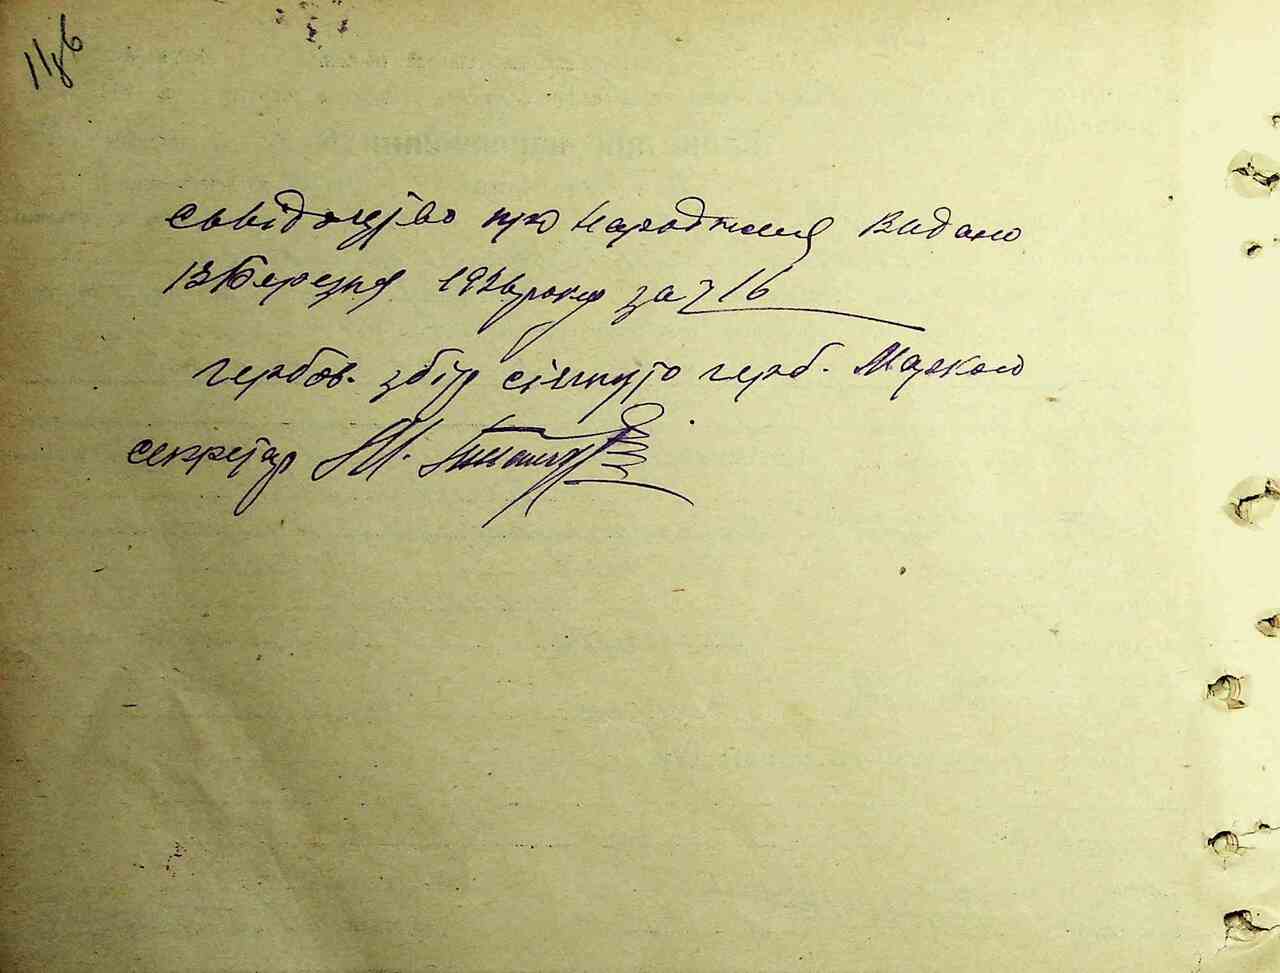 свідоцтво про народження видано
13 березня 1926 року за № 16
гербов. збір стягнуто герб. Маркою
секретар